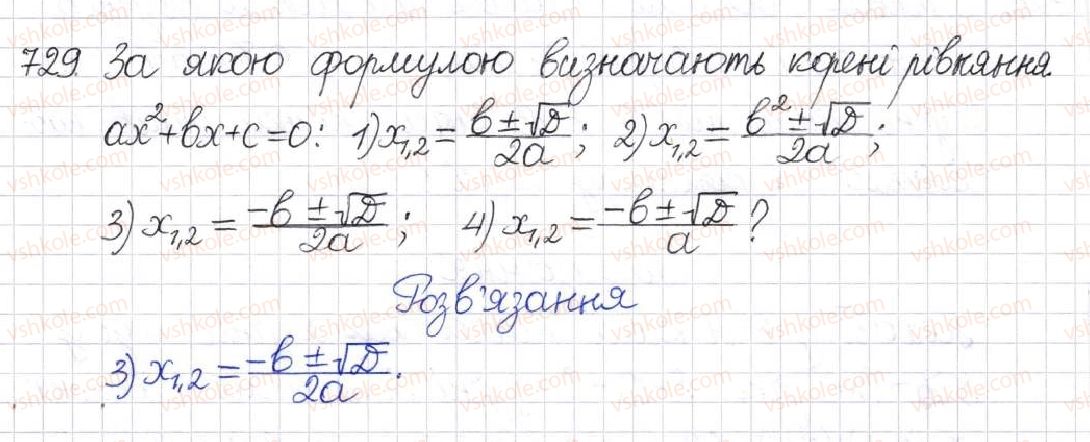 729. За якою формулою визначають корені рівняння
ax²+bx+c=0: 1) x₁,₂ = (b ± √D)/(2a); 2) x₁,₂ = (b² ± √D)/(2a);
3) x₁,₂ = (-b ± √D)/(2a); 4) x₁,₂ = (-b ± √D)/a?
Розв'язання
3) x₁,₂ = (-b ± √D)/(2a).